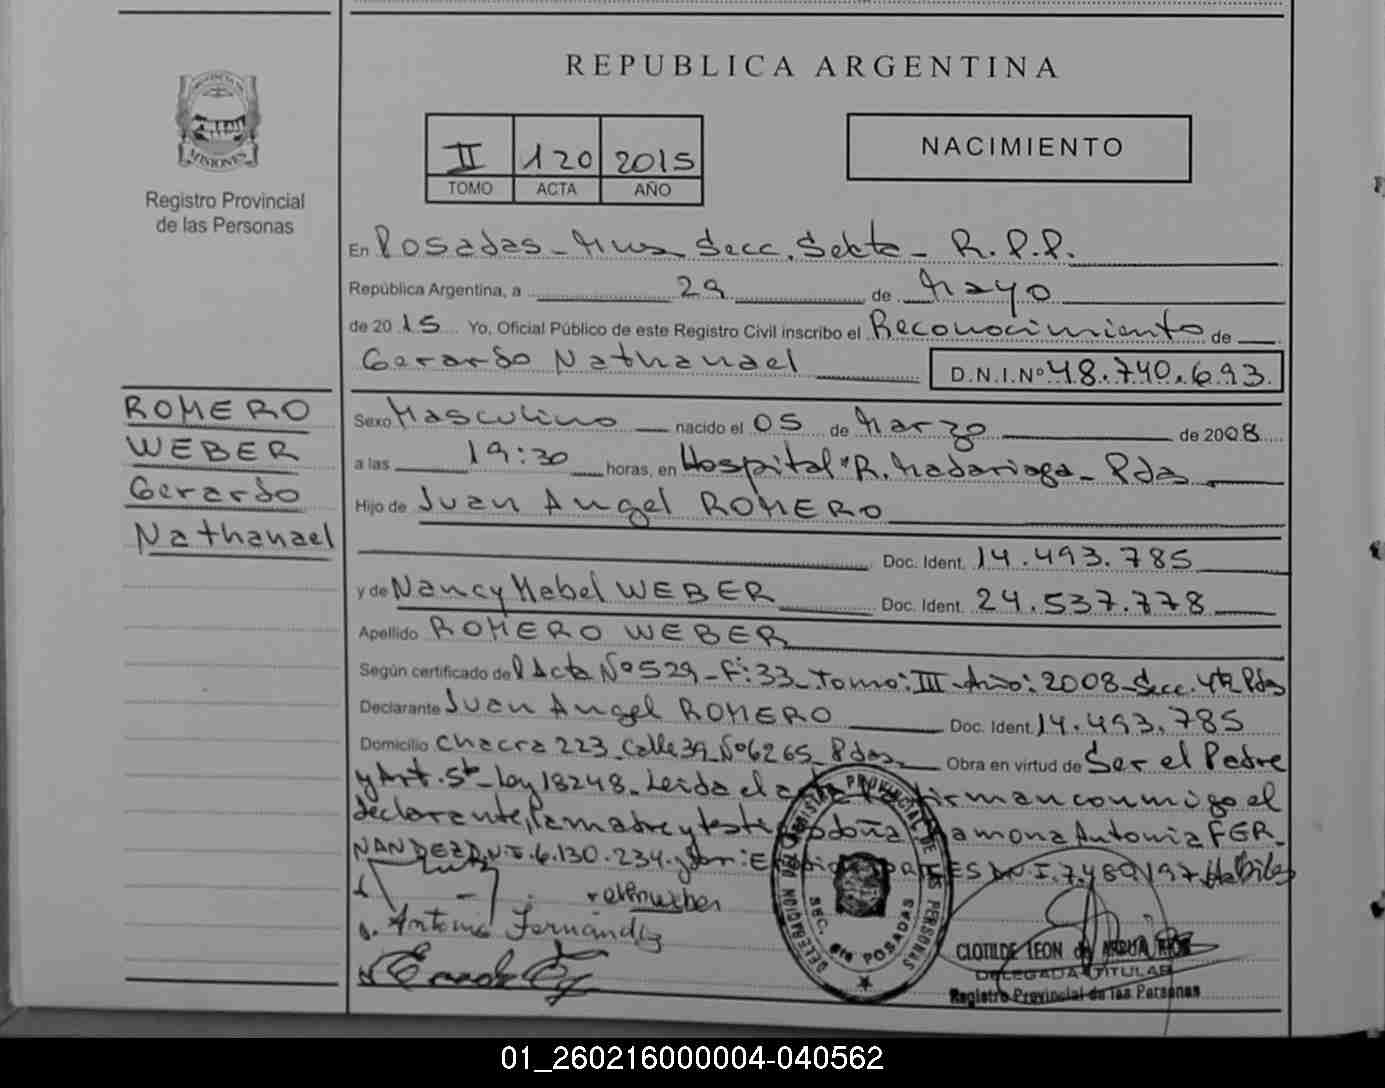 REPUBLICA ARGENTINA
PROVINCIA DE
MISIONES
Registro Provincial
de las Personas
II 120 2015
TOMO ACTA AÑO
NACIMIENTO
En Posadas - Mnes Secc. Sexta - R.P.P.
República Argentina, a 29 de Mayo
de 2015 Yo, Oficial Público de este Registro Civil inscribo el Reconocimiento de
Gerardo Nathanael D.N.I.Nº 48.740.693.
ROMERO
WEBER
Gerardo
Nathanael
Sexo Masculino nacido el 05 de Marzo de 2008
a las 19:30 horas, en Hospital "R. Madariaga - Pdas
Hijo de Juan Angel ROMERO
Doc. Ident. 14.493.785
y de Nancy Mabel WEBER Doc. Ident. 24.537.778
Apellido ROMERO WEBER
Según certificado del Acta Nº 529 - F: 33 - Tomo: III - Año: 2008 - Secc. 4ta Pdas
Declarante Juan Angel ROMERO Doc. Ident. 14.493.785
Domicilio Chacra 223 - Calle 39 - Nº 6265 - Pdas Obra en virtud de Ser el Padre
y Art. 5to - Ley 18248 - Leída el acta la firman conmigo el
declarante, la madre y testigos doña Ramona Antonia FER-
NANDEZ D.N.I. 6.130.234 - y don: D.N.I. 7.489.197 Habiles
DELEGACION DEL REGISTRO PROVINCIAL DE LAS PERSONAS
SEC. 6ta POSADAS
Antonia Fernández
CLOTILDE LEON de
DELEGADA TITULAR
Registro Provincial de las Personas
01_260216000004-040562